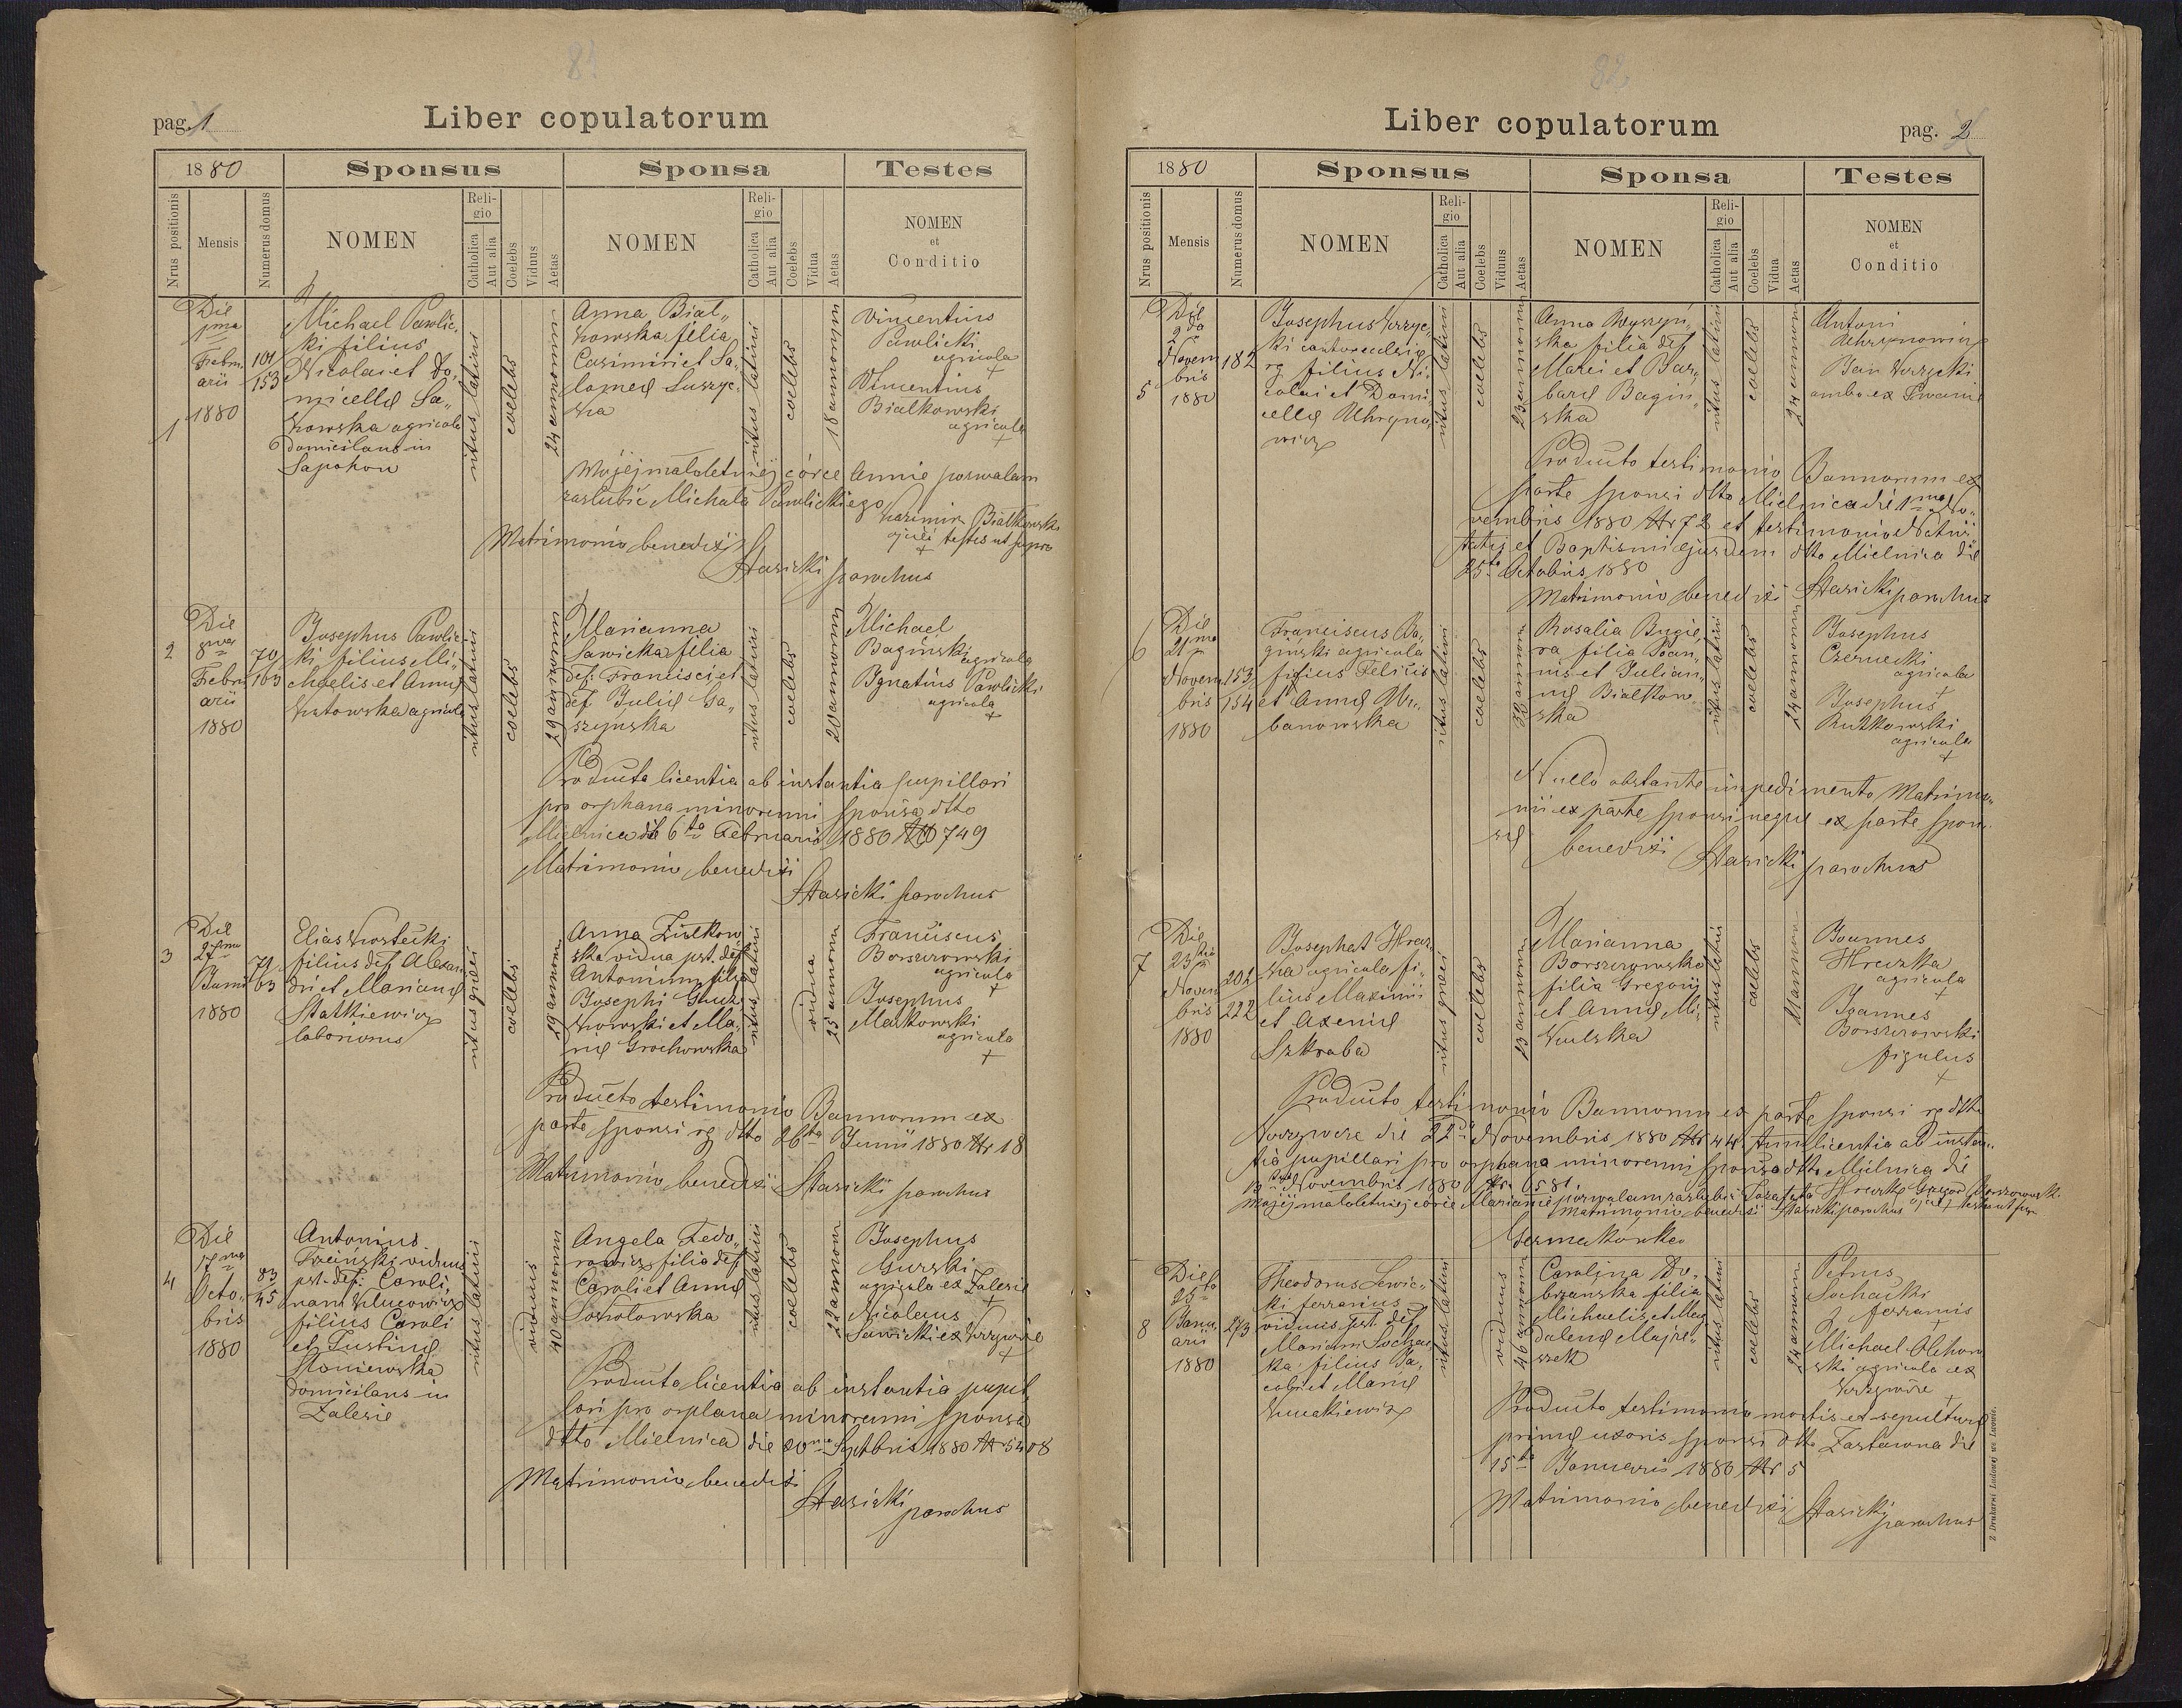 81
pag. 1
Liber copulatorum
1880
Sponsus
Sponsa
Testes
Nrus positionis
Mensis
Numerus domus
NOMEN
Religio
Catholica
Aut alia
Coelebs
Viduus
Aetas
NOMEN
Religio
Catholica
Aut alia
Coelebs
Vidua
Aetas
NOMEN
et
Conditio
1
Die
1ma
Febru
arii
1880
101
153
Michael Pawlic,
ki filius
Nicolai et Do,
micellę Sa,,
kowska agricola
domicilans in
Sapohow
ritus latini
coelebs
24 annorum
Anna Biał,,
kowska filia
Casimiri et Sa,,
lomeę Luszyc,
ka
ritus latini
coelebs
18 annorum
Vincentius
Pawlicki
agricola
+
Vincentius
Białkowski
agricola
+
Mojej małoletniej córce Annie pozwalam
zaślubić Michała Pawlickiego
Kazimir Białkowski
ojciec testes ut supra
+
Matrimonio benedixi
Stasicki parochus
2
Die
8va
Febru
arii
1880
70
163
Josephus Pawlic
ki filius Mi,
chaelis et Annę
agricola
ritus latini
coelebs
29 annorum
Marianna
Sawicka filia
def: Francisci et
def. Julię Ga,,
szynska
ritus latini
coelebs
20 annorum
Michael
Baginski
agricola
Ignatius Pawlicki
agricola
+
Producta licentia ab instantia pupillari
pro orphana minorenni sponsa dtto
Mielnica die 6ta Februarii 1880 Nr 749
Matrimonio benedixi
Stasicki parochus
3
Die
27ma
Junii
1880
71
63
Elias Kostecki
filius def Alexan
dri et Mariannę
Statkiewicz
laboriosus
ritus graeci
coelebs
19 annorum
Anna Ziułkow
ska vidua pst. def
Antonium filia
Josephi
kowski et Ma,
rię Grochowska
ritus latini
vidua
annorum
Franciscus
Borszczowski
agricola
+
Josephus
Malkowski
agricola
+
Producto testimonio Bannorum ex
parte sponsi rg dtto 26ta Junii 1880 Nr 18
Matrimonio benedixi Stasicki parochus
4
Die
17ma
Octo,
bris
1880
83
45
Antonius
viduus
pst. def: Caroli,
nam Klucowicz
filius Caroli
et Justinę
Słoniewska
domicilans in
Zalesie
ritus latini
viduus
40 annorum
Angela Fedo,,
rowicz filia def
Caroli et Annę
Sokołowska
ritus latini
coelebs
22 annorum
Josephus
Gurski
agricola ex Zalesie
+
Nicolaus
Sawicki ex Krzywcze
+
Producta licentia ab instantia pupil,
lari pro orphana minorenni sponsa
dtto Mielnica die 20ma Septbris 1880 Nr 5408
Matrimonio benedixi
Stasicki
parochus
82
Liber copulatorum
pag. 2
1880
Sponsus
Sponsa
Testes
Nrus positionis
Mensis
Numerus domus
NOMEN
Religio
Catholica
Aut alia
Coelebs
Viduus
Aetas
NOMEN
Religio
Catholica
Aut alia
Coelebs
Vidua
Aetas
NOMEN
et
Conditio
5
Die
2da
Novem
bris
1880
182
Josephus Krzyc,
ki cantor ecclesię
rg filius Ni,
colai et Domi,
cellę Uhryno,
wicz
ritus latini
coelebs
23 annorum
Anna Wyszyń,,
ska filia def
Marci et Bar,
barę Bagin,,
ska
ritus latini
coelebs
24 annorum
Antoni
Uhrynowicz
Jan Krzycki
ambo ex Iwanie
Producto testimonio Bannorum ex
parte sponsi dtto Mielnica die 1ma No,,
vembris 1880 Nr 72 et testimonio Nativi,
tatis et Baptismi ejusdem dtto Mielnica die
25ta Octobris 1880
Matrimonio benedixi Stasicki parochus
6
Die
21ma
Novem
bris
1880
153
154
Franciscus Ba,
giński agricola
filius Felicis
et Annę Ur,,
banowska
ritus latini
coelebs
annorum
Rosalia Bugie,
ra filia Joan,,
nis et Julian,,
nę Białkow
ska
ritus latini
coelebs
24 annorum
Josephus
Czernecki
agricola
+
Josephus
Rutkowski
agricola
+
Nullo obstante impedimento Matrimo,,
nii ex parte sponsi neque ex parte spon,
sę
benedixi
Stasicki parochus
7
Die
23tia
Novem
bris
1880
202
222
Josephat Hrecz,
ka agricola fi,
lius Maximi
et Axenię
Szkraba
ritus graeci
coelebs
23 annorum
Marianna
Borszczowska
filia Gregorii
et Annę Mi,
kulska
ritus latini
coelebs
annorum
Joannes
Hreczka
agricola
+
Joannes
Borszczowski
figulus
+
Producto testimonio Bannorum ex parte sponsi rg dtto
Krzywcze die 22da Novembris 1880 Nr 44 tum licentia ab instan,,
tia pupillari pro orphana minorenni sponsa dtto Mielnica die
Novembris 1880 Nr. 6581.
Mojej małoletniej córce Mariannie pozwalam zaślubić Jozafata Hreczkę Grzegorz Borszczowski
ojciec + testes ut supra
Matrimonio benedixi Stasicki parochus
Germakówka
8
Die
25ta
Janu,
arii
1880
273
Theodorus Lewic,,
ki ferrarius
viduus pst. def
Mariam Sochac,
ka filius Ja,
cobi et Marię
Kunckiewicz
ritus latini
viduus
46 annorum
Carolina Do,
brzanska filia
Michaelis et Mag
dalenę Majre,,
szek
ritus latini
coelebs
24 annorum
Petrus
Sochacki
ferrarius
+
Michael Olchow
ski agricola ex
Krzywcze
+
Producto testimonio mortis et sepulturę
primę uxoris sponsi dtto Zastawna die
15ta Januarii 1880 Nr 5
Matrimonio benedixi Stasicki
parochus
Z Drukarni Ludowej we Lwowie.